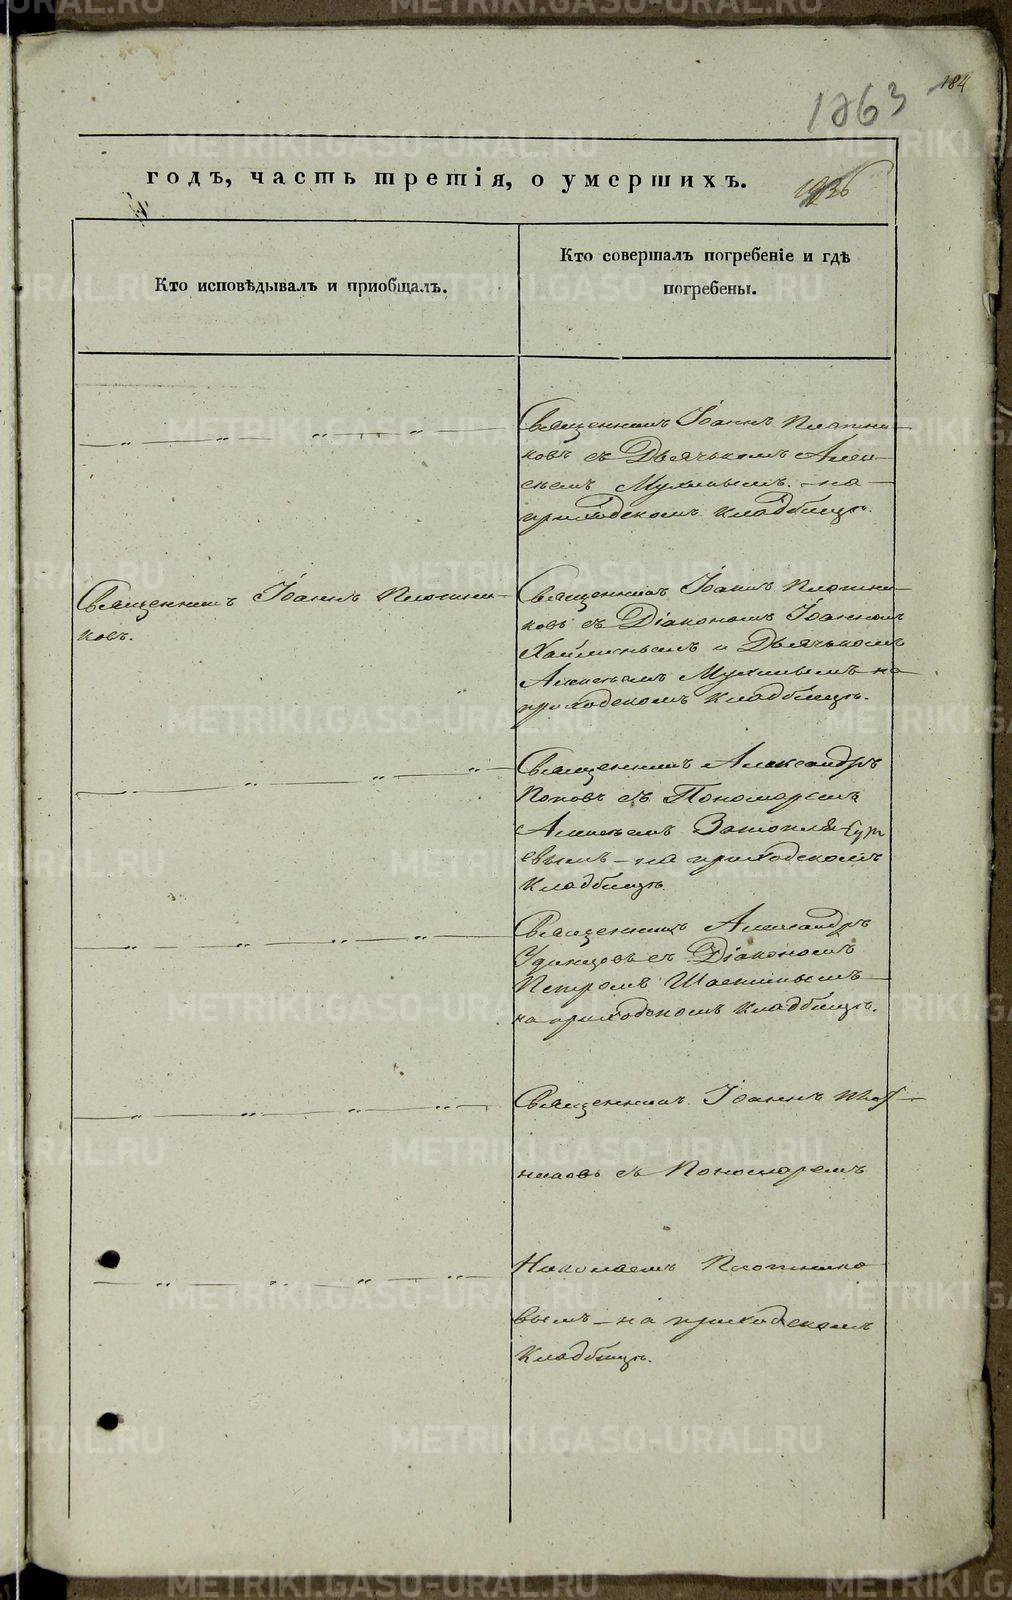 184
1863
годъ, часть третія, о умершихъ.
Кто исповѣдывалъ и приобщалъ.
Кто совершалъ погребеніе и гдѣ
погребены.
Священникъ Іоаннъ Плотни-
ковъ съ Дьячькомъ Алек-
сѣемъ Мухинымъ. на
приходскомъ кладбищѣ.
Священникъ Іоаннъ Плотни-
ковъ.
Священникъ Іоаннъ Плотни-
ковъ съ Діакономъ Іоанномъ
и Дьячькомъ
Алексѣемъ Мухинымъ на
приходскомъ кладбищѣ.
Священникъ Александръ
Поповъ съ Пономаремъ
Алексѣемъ
евымъ - на приходскомъ
кладбищѣ.
Священникъ Александръ
Удинцовъ съ Діакономъ
Петромъ
на приходскомъ кладбищѣ.
Священникъ Іоаннъ Плот-
никовъ съ Пономаремъ
Николаемъ Плотнико
вымъ - на приходскомъ
кладбищѣ.
METRIKI.GASO-URAL.RU